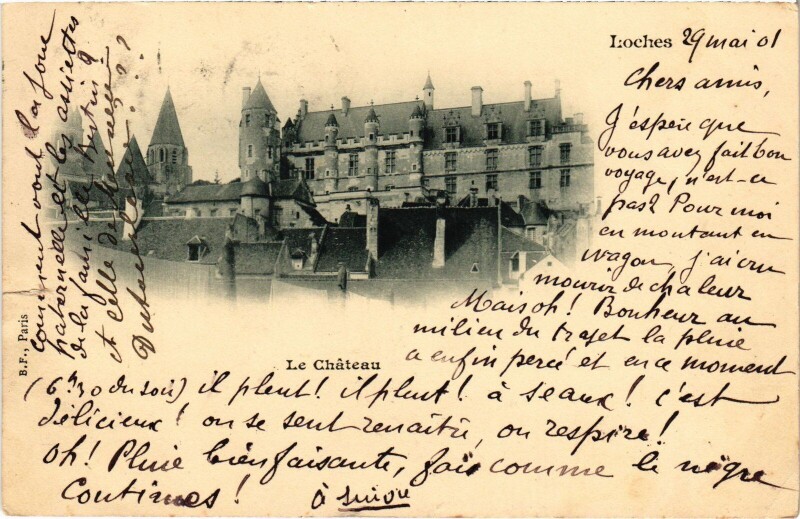 Loches 29 mai 01
Chers amis,
J'espère que
vous avez fait bon
voyage, n'est-ce
pas? Pour moi
en montant en
wagon, j'ai cru
mourir de chaleur
Mais oh! Bonheur au
milieu du trajet la pluie
a enfin percé et en ce moment
(6h30 du soir) il pleut! il pleut! à seaux! c'est
délicieux! on se sent renaître, on respire!
oh! Pluie bienfaisante, fais comme le nègre
Continues! à suivre
Le Château
B.F., Paris
Comment vont la joue
paternelle et les assiettes
de la famille
et celle de